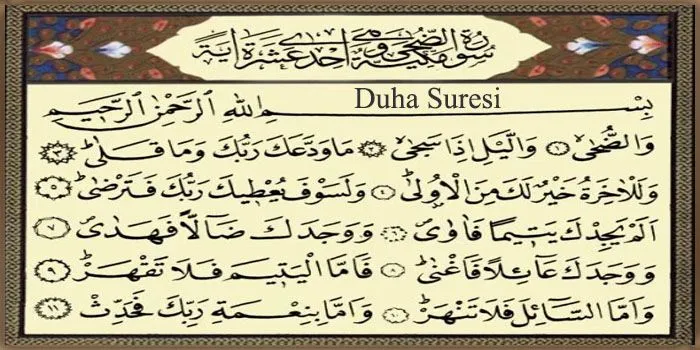 سُورَةُ الضُّحٰى مَكِّيَّةٌ وَهِيَ اِحْدٰى عَشْرَةَ اٰيَةً
Duha Suresi
بِسْمِ اللّٰهِ الرَّحْمٰنِ الرَّحٖيمِ
وَالضُّحٰىۙ ﴿١﴾ وَالَّيْلِ اِذَا سَجٰىۙ ﴿٢﴾ مَا وَدَّعَكَ رَبُّكَ وَمَا قَلٰىؕ ﴿٣﴾
وَلَلْاٰخِرَةُ خَيْرٌ لَكَ مِنَ الْاُو۫لٰىؕ ﴿٤﴾ وَلَسَوْفَ يُعْطٖيكَ رَبُّكَ فَتَرْضٰىؕ ﴿٥﴾
اَلَمْ يَجِدْكَ يَتٖيمًا فَاٰوٰىۖ ﴿٦﴾ وَوَجَدَكَ ضَٓالًّا فَهَدٰىۖ ﴿٧﴾
وَوَجَدَكَ عَٓائِلًا فَاَغْنٰىؕ ﴿٨﴾ فَاَمَّا الْيَتٖيمَ فَلَا تَقْهَرْؕ ﴿٩﴾
وَاَمَّا السَّٓائِلَ فَلَا تَنْهَرْؕ ﴿١٠﴾ وَاَمَّا بِنِعْمَةِ رَبِّكَ فَحَدِّثْ ﴿١١﴾